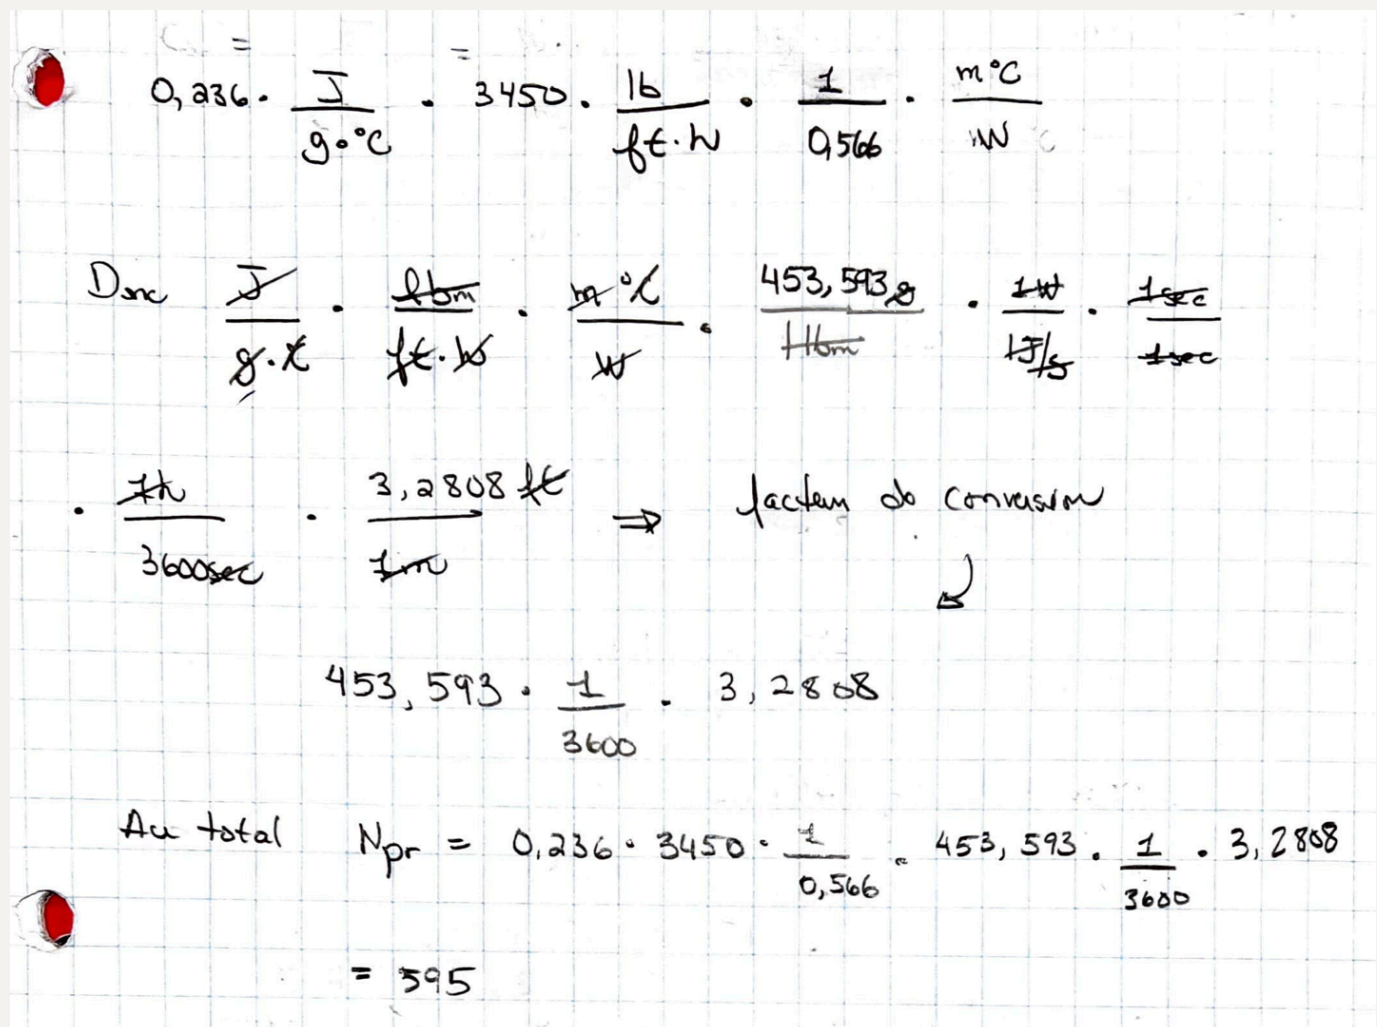 0,236 · J / g·°C · 3450 · lb / ft·h · 1 / 0,566 · m°C / W
Donc J / g·C · lbm / ft·h · m°C / W · 453,593 g / 1 lbm · 1W / 1J/s · 1sec / 1sec
· 1h / 3600sec · 3,2808 ft / 1m ⇒ facteur de conversion
453,593 · 1 / 3600 · 3,2808
Au total Npr = 0,236 · 3450 · 1 / 0,566 · 453,593 · 1 / 3600 · 3,2808
= 595